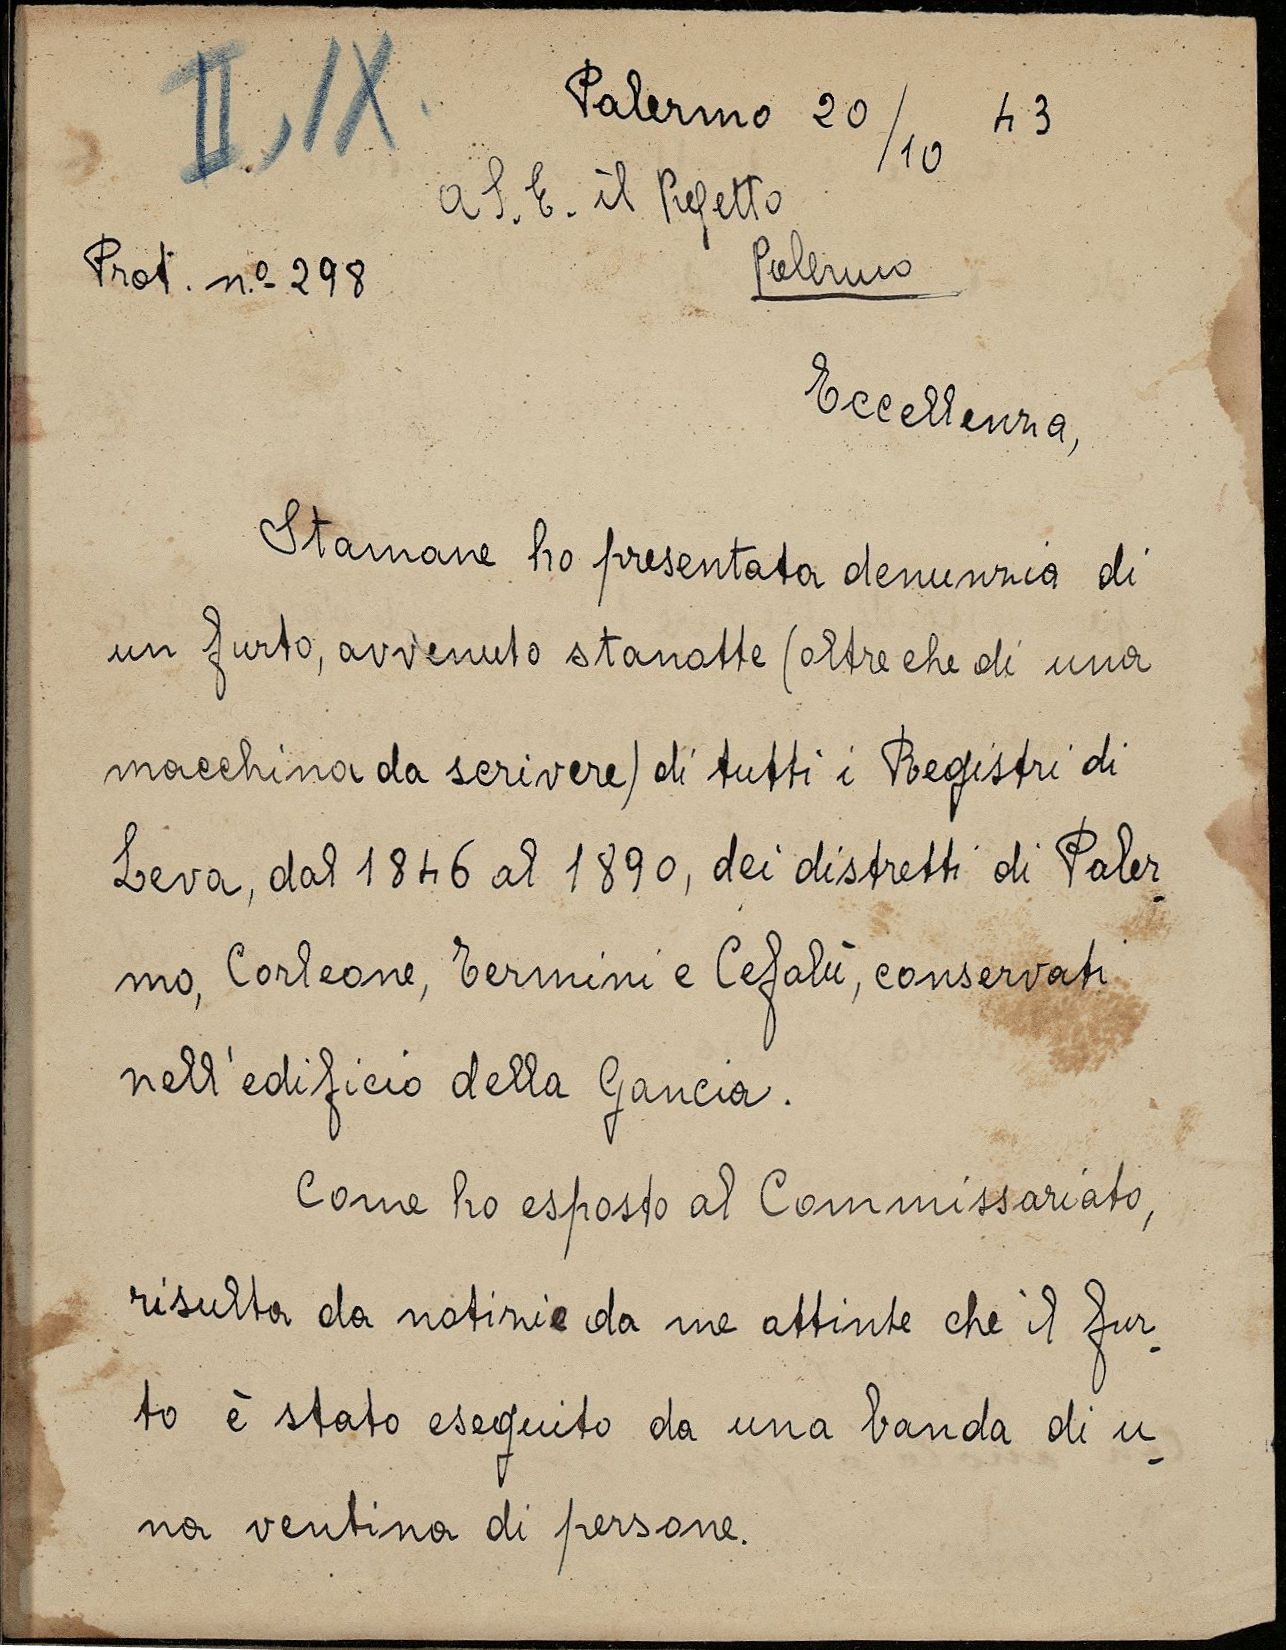 II, IX.
Palermo 20/10 43
a S. E. il Prefetto
Palermo
Prot. n.º 298
Eccellenza,
Stamane ho presentata denunzia di
un furto, avvenuto stanotte (oltre che di una
macchina da scrivere) di tutti i Registri di
Leva, dal 1846 al 1890, dei distretti di Paler-
mo, Corleone, Termini e Cefalù, conservati
nell'edificio della Gancia.
Come ho esposto al Commissariato,
risulta da notizie da me attinte che il fur-
to è stato eseguito da una banda di u-
na ventina di persone.